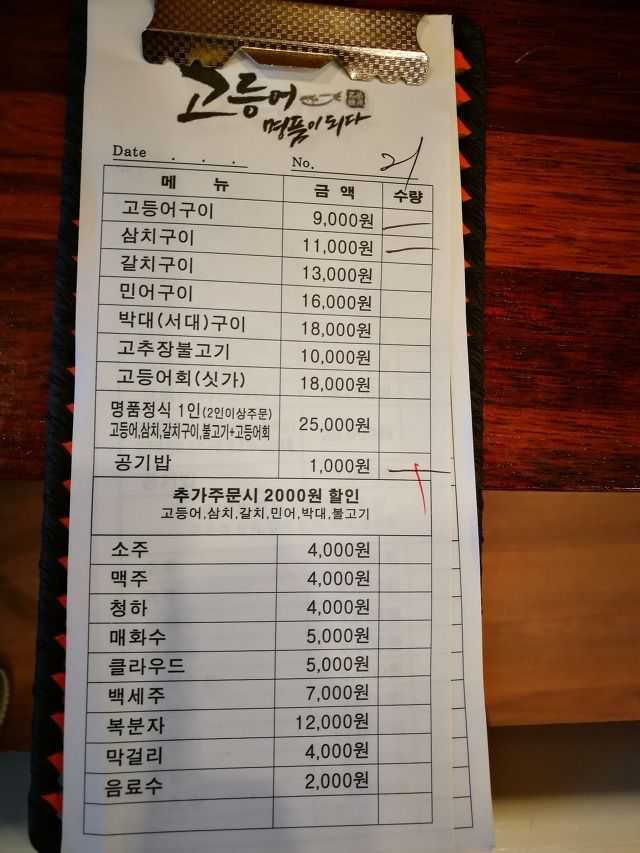 고등어
명품이 되다
Date . . . No. 21
메 뉴 금 액 수량
고등어구이 9,000원 一
삼치구이 11,000원 一
갈치구이 13,000원
민어구이 16,000원
박대(서대)구이 18,000원
고추장불고기 10,000원
고등어회(싯가) 18,000원
명품정식 1인(2인이상주문) 25,000원
고등어,삼치,갈치구이,불고기+고등어회
공기밥 1,000원
추가주문시 2000원 할인
고등어,삼치,갈치,민어,박대,불고기
소주 4,000원
맥주 4,000원
청하 4,000원
매화수 5,000원
클라우드 5,000원
백세주 7,000원
복분자 12,000원
막걸리 4,000원
음료수 2,000원